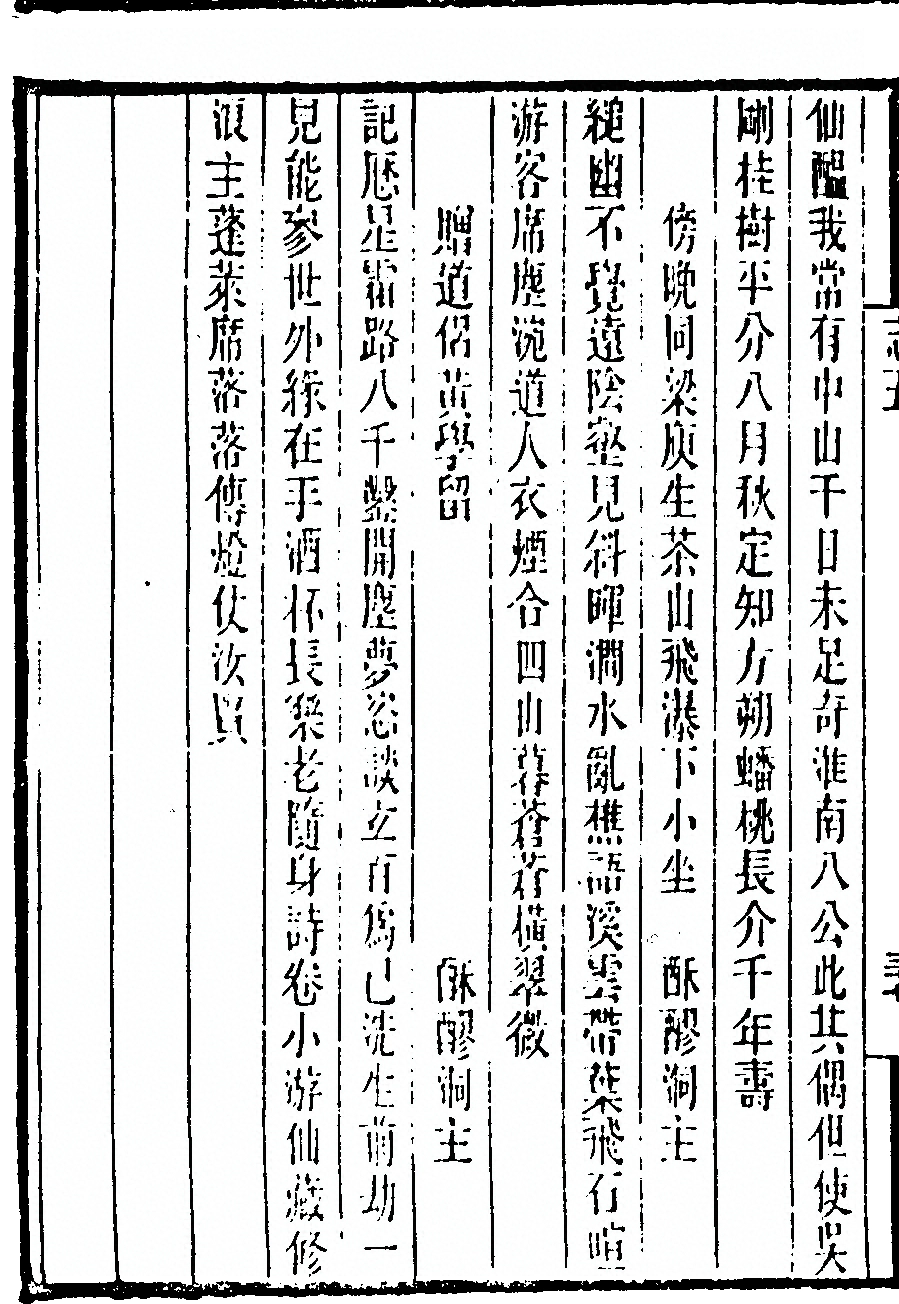 仙醖我當有中山千日未足奇淮南八公此其偶但使吳
剛桂樹平分八月秋定知方朔蟠桃長介千年壽
傍晚同梁庾生茶山飛瀑下小坐　酥醪洞主
縋幽不覺遠陰壑見斜暉澗水亂樵語溪雲帶葉飛行喧
游客席塵浣道人衣煙合四山暮蒼蒼橫翠微
贈道侶黃學留　酥醪洞主
記歷星霜路八千鑿開塵夢恣談玄百爲已洗生前劫一
見能參世外緣在手酒杯長樂老隨身詩卷小游仙藏修
浪主蓬萊席落落傳燈仗汝賢